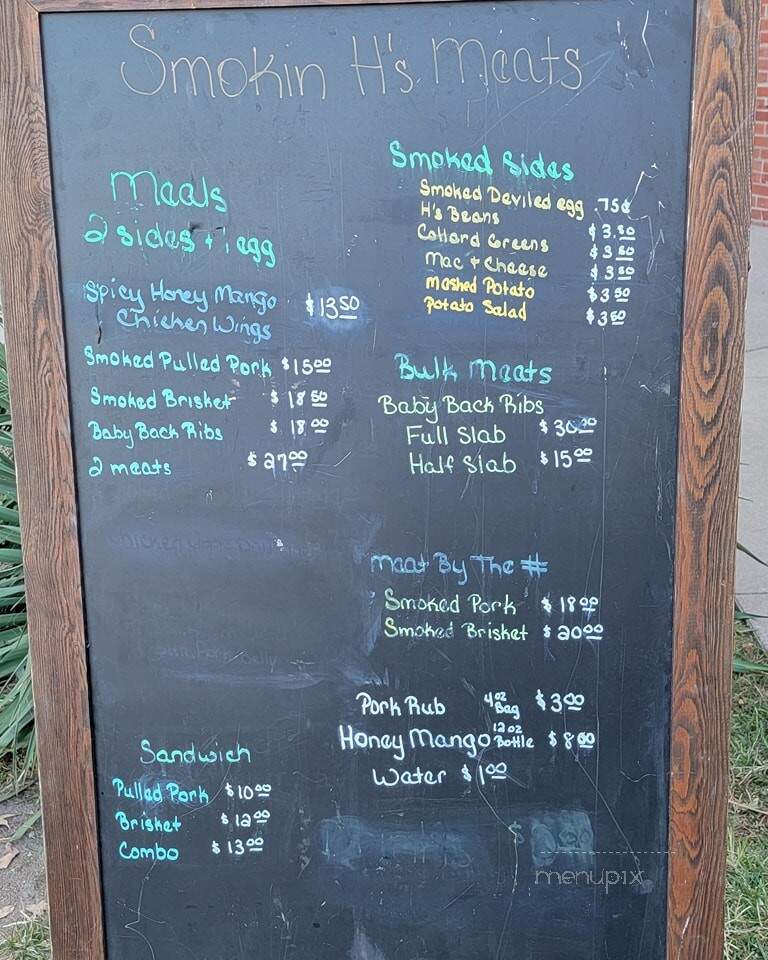 Smokin H's Meats
Meals
2 sides + 1 egg
Spicy Honey Mango $13.50
Chicken Wings
Smoked Pulled Pork $15.00
Smoked Brisket $18.50
Baby Back Ribs $18.00
2 meats $27.00
Sandwich
Pulled Pork $10.00
Brisket $12.00
Combo $13.00
Smoked Sides
Smoked Deviled egg .75¢
H's Beans $3.50
Collard Greens $3.50
Mac + Cheese $3.50
Mashed Potato $3.50
Potato Salad $3.50
Bulk Meats
Baby Back Ribs
Full Slab $30.00
Half Slab $15.00
Meat By The #
Smoked Pork $18.00
Smoked Brisket $20.00
Pork Rub 4oz Bag $3.00
Honey Mango 12oz Bottle $8.00
Water $1.00
menupix